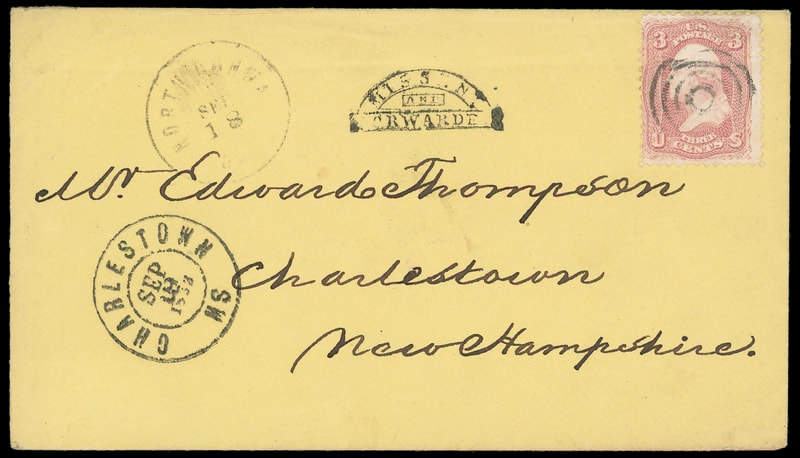 SEP
MISSENT
AND
ORWARDE
3 U.S. POSTAGE 3
U THREE CENTS S
Mr. Edward Thompson
Charlestown
New Hampshire.
CHARLESTOWN MS
SEP